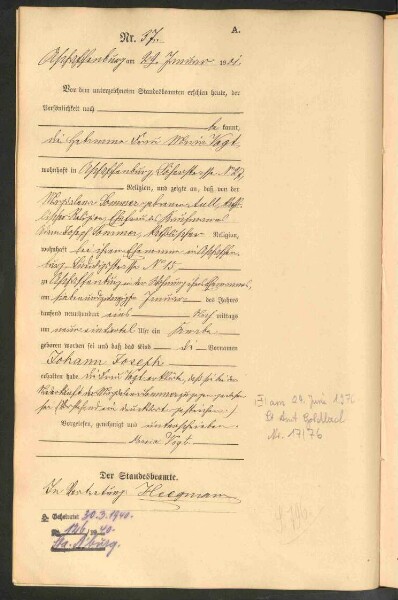 A.
Nr. 37.
Aschaffenburg am 29. Januar 1901.
Vor dem unterzeichneten Standesbeamten erschien heute, der
Persönlichkeit nach
be kannt,
die Hebamme Frau Maria Vogt
wohnhaft in Aschaffenburg
Religion, und zeigte an, daß von der
Magdalena Sommer geborene
Religion, Ehefrau des Kaufmanns
Joseph Sommer, katholischer Religion,
wohnhaft bei ihrem Ehemanne in Aschaffen-
burg No 15
in Aschaffenburg in der Wohnung ihres Ehemannes,
am siebenundzwanzigsten Januar des Jahres
tausend neunhundert eins Nach mittags
um neun einviertel Uhr ein Knabe
geboren worden sei und daß das Kind die Vornamen
Johann Joseph
erhalten habe. Die Frau Vogt erklärt, daß sie bei der
Niederkunft der Magdalena Sommer zugegen gewesen
sei.
Vorgelesen, genehmigt und unterschrieben
Maria Vogt
Der Standesbeamte.
In Vertretung
Geheiratet 30.3.1940.
Nr. 146 40
Aburg.
am 24. Juni 1976
St Amt Goldbach
Nr. 17/76